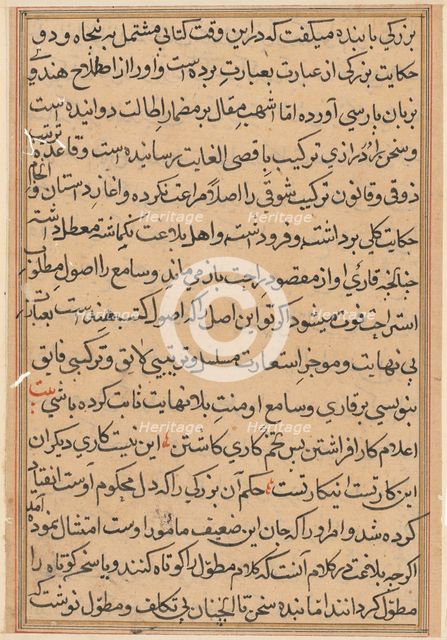 بزرکی با بنده میکفت که درین وقت کتابی مشتمل بر پنجاه و دو
حکایت بزرکی از عبارت بعبارت برده است و او را از اصطلاح هندوی
بزبان پارسی آورده اما اشهب مقال بر مضمار اطالت دوانیده است
و سخن را در درازی ترکیب باقصی الغایت رسانیده است وقاعده ترتیب
ذوقی و قانون ترکیب شوقی را اصلا مراعت نکرده و اغاز داستان وانجام
حکایت کلی برداشت و فرو داشت و اهل بلاغت نکماشته معطل داشته
چنانچه قاری او از مقصود راحت باز می ماند و سامع را اصول مطلوب
استراحت فوت میشود اکر تو این اصل را که اصول کتب هندست بعبارت
بی نهایت و موجز استعارت مسلسل و ترتیبی لائق و ترکیبی فائق
بنویسی بر قاری و سامع او منت بلا نهایت ثابت کرده باشی بیت
اعلام کار افراشتن پس تخم کاری کاشتن این نیست کاری دیکران
این کار تست این کار تست حکم آن بزرکی را که دل محکوم اوست انقیاد
کرده شد و امر او را که جان این ضعیف مامور اوست امتثال نموده آمد
اکرچه بلاغت در کلام آنست که کلام مطول را کوتاه کنند و یا سخن کوتاه را
مطول کردانند اما بنده سخن تا آنچنان بی تکلف و مطول نوشت که
Heritage
Heritage
Heritage
Heritage
Heritage
Heritage
Heritage
Heritage
C